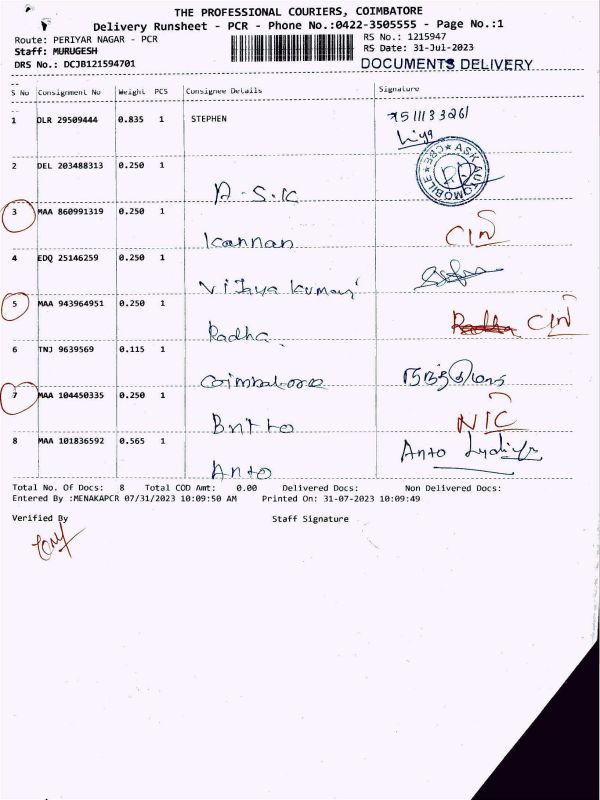 THE PROFESSIONAL COURIERS, COIMBATORE
Delivery Runsheet - PCR - Phone No.:0422-3505555 - Page No.:1
Route: PERIYAR NAGAR - PCR
RS No.: 1215947
Staff: MURUGESH
RS Date: 31-Jul-2023
DRS No.: DCJB121594701
DOCUMENTS DELIVERY
S No Consignment No Weight PCS Consignee Details Signature
1 DLR 29509444 0.835 1 STEPHEN
2 DEL 203488313 0.250 1
A.S.K
ASK AUTOMOBILE CBE
3 MAA 860991319 0.250 1
Kannan
4 EDQ 25146259 0.250 1
Vijaya Kumar
5 MAA 943964951 0.250 1
Radha
6 TNJ 9639569 0.115 1
Coimbatore
7 MAA 104450335 0.250 1
Britto
NIC
8 MAA 101836592 0.565 1
Anto
Anto
Total No. Of Docs: 8 Total COD Amt: 0.00 Delivered Docs: Non Delivered Docs:
Entered By :MENAKAPCR 07/31/2023 10:09:50 AM Printed On: 31-07-2023 10:09:49
Verified By Staff Signature